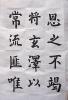 恩之不竭
將玄澤以
常流匪唯